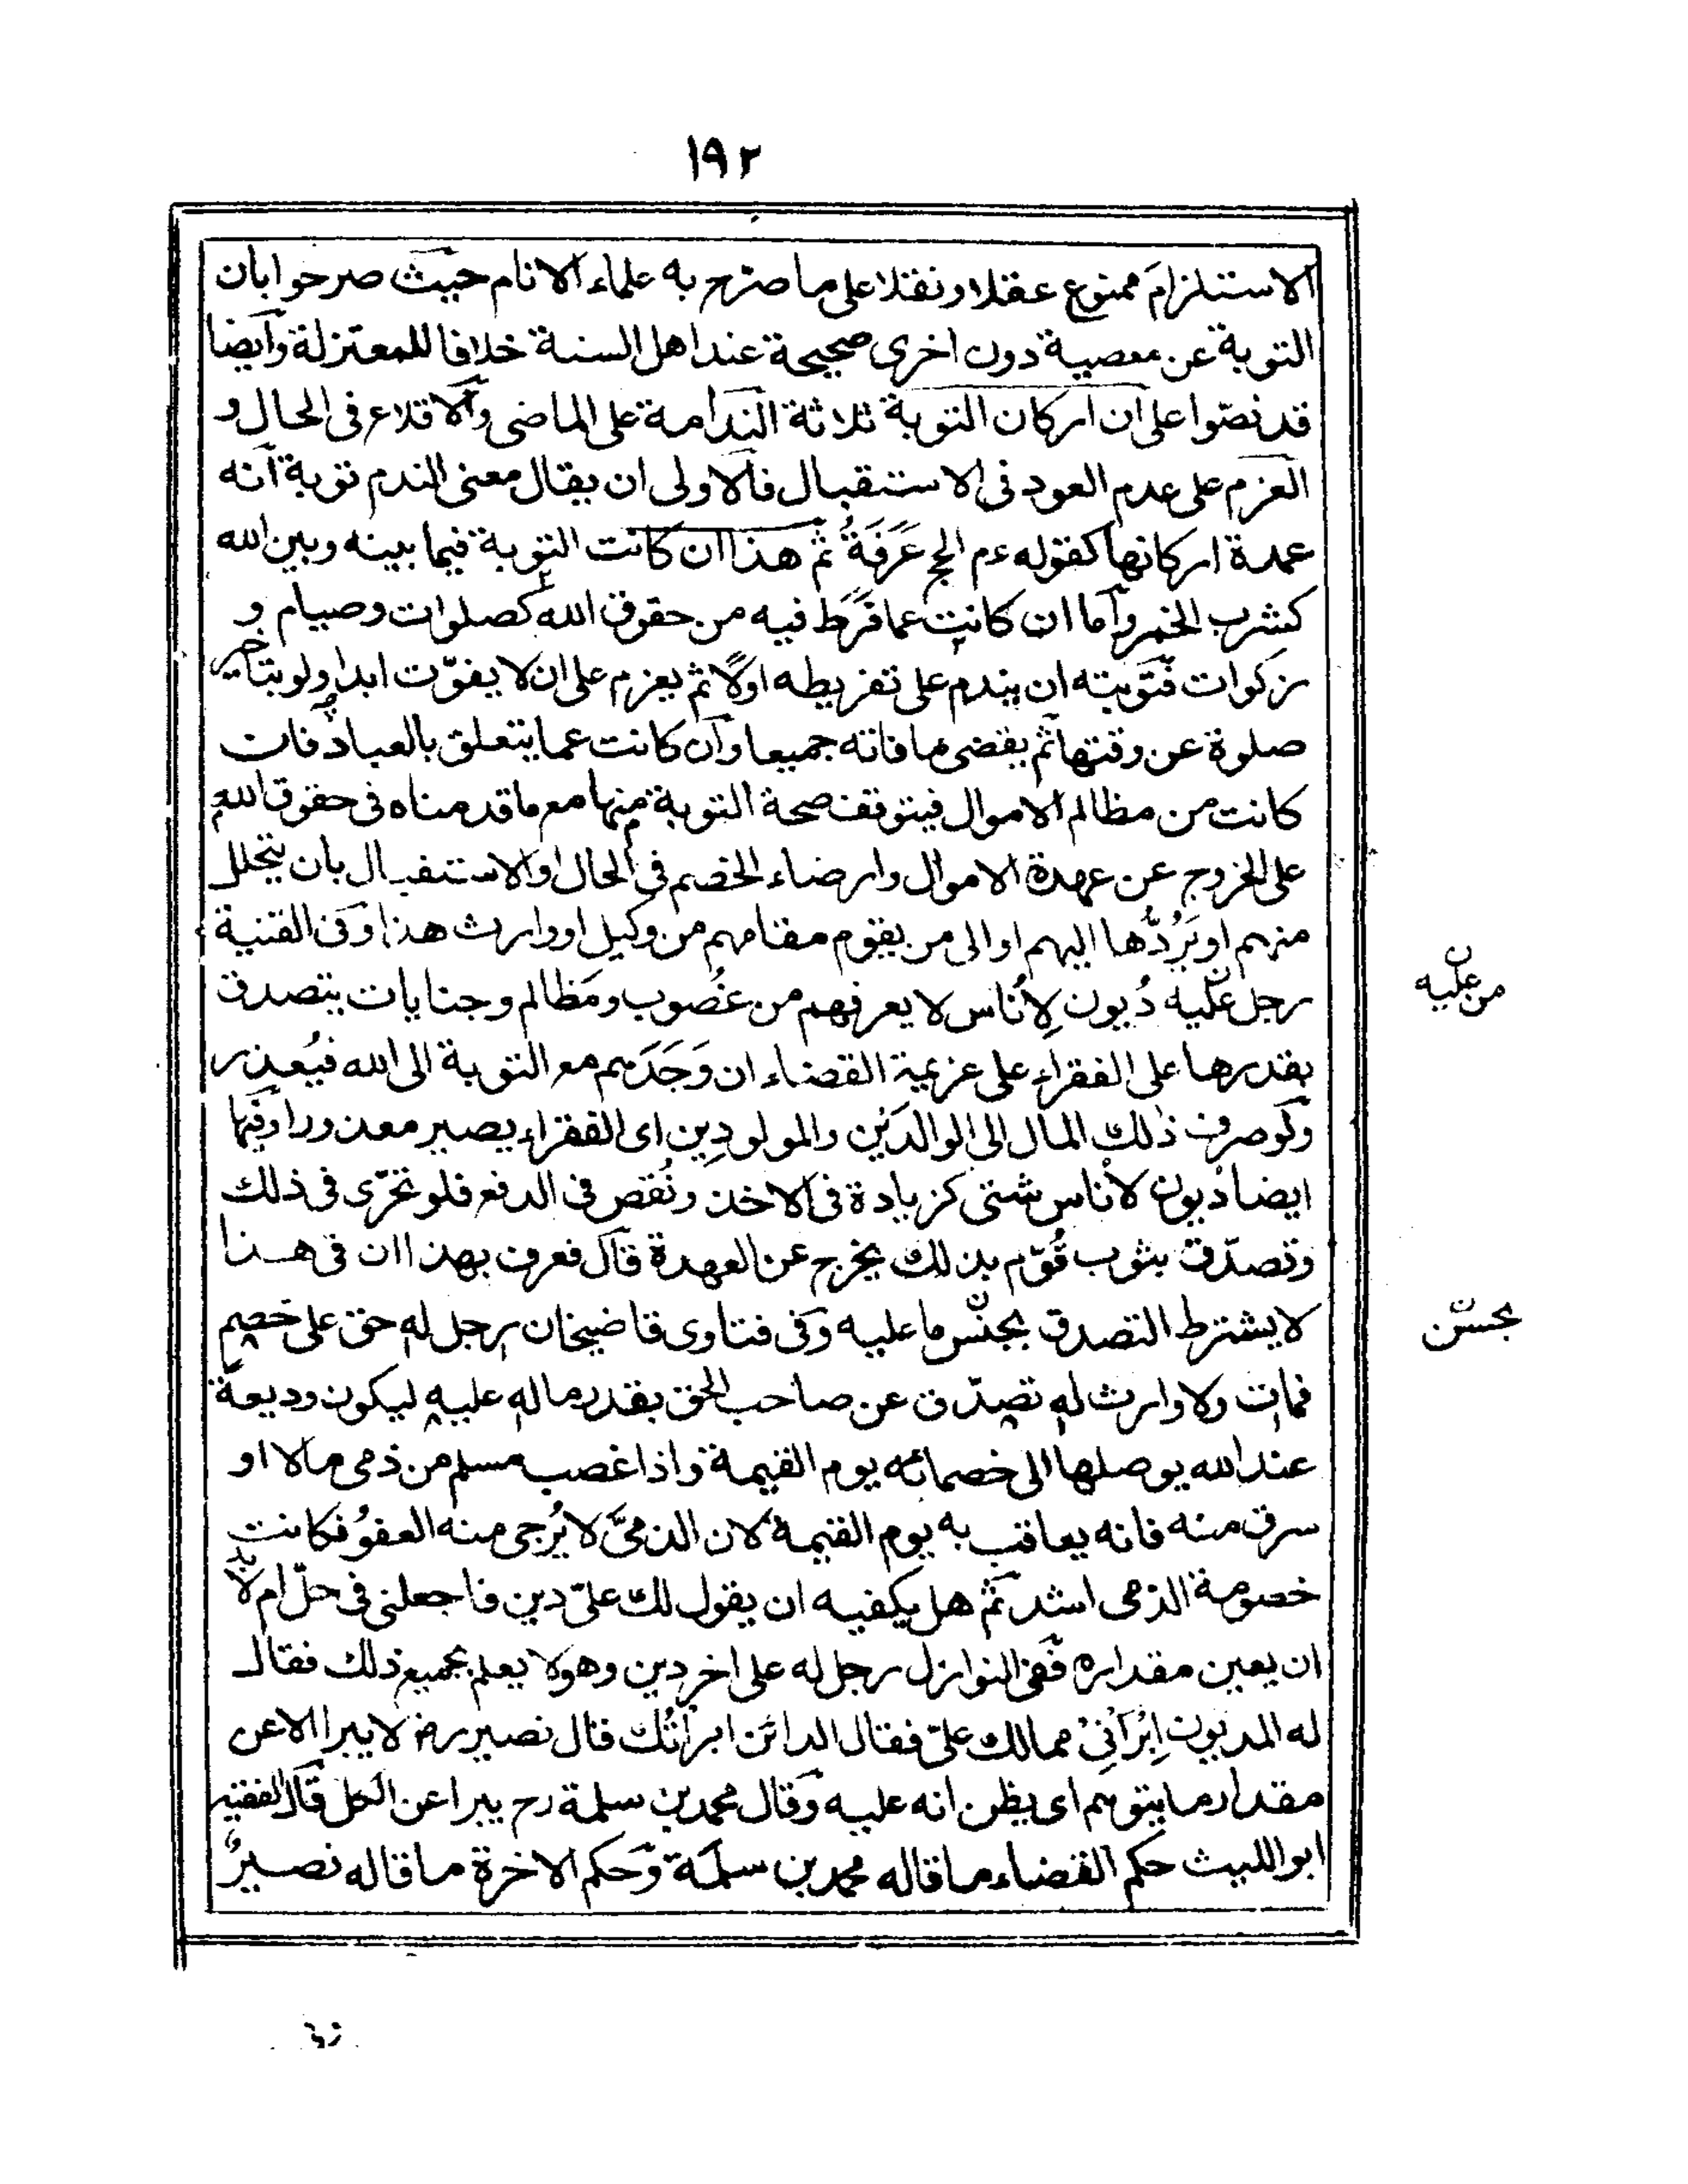 ١٩٢
الاستلزام ممنوع عقلا ونقلا على ما صرّح به علماء الانام حيث صرحوا بان
التوبة عن معصية دون اخرى صحيحة عند اهل السنة خلافا للمعتزلة وايضا
قد نصّوا على ان اركان التوبة ثلاثة الندامة على الماضى والاقلاع فى الحال و
العزم على عدم العود فى الاستقبال فالاولى ان يقال معنى الندم توبة انه
عمدة اركانها كقوله عم الحج عَرَفَةُ ثم هذا ان كانت التوبة فيما بينه وبين الله
كشرب الخمر واما ان كانت عما فَرَّط فيه من حقوق الله كصلوات وصيام و
زكوات فتوبته ان يندم على تفريطه اولًا ثم يعزم على ان لا يفوّت ابدا ولو بتاخير
صلوة عن وقتها ثم يقضى ما فاته جميعا وان كانت عما يتعلق بالعباد فان
كانت من مظالم الاموال فيتوقف صحة التوبة منها مع ما قدمناه فى حقوق الله
على الخروج عن عهدة الاموال وارضاء الخصم فى الحال او الاستقبال بان يتحلل
منهم او يَرُدَّها اليهم او الى من يقوم مقامهم من وكيل او وارث هذا وفى القنية
رجل عليه دُيون لِاُناس لا يعرفهم من غصُوب ومَظالم وجنايات يتصدق
بقدرها على الفقراء على عزيمة القضاء ان وَجَدَهم مع التوبة الى الله فيُعذر
ولو صرف ذلك المال الى الوالدَيْن والمولودِين اى الفقراء يصير معذورا وفيها
ايضا ديون لأناس شتى كزيادة فى الاخذ ونُقص فى الدفع فلو تحرّى فى ذلك
وتصدّق بثوب قُوّم بذلك يخرج عن العهدة قال فعرف بهذا ان فى هذا
لا يشترط التصدق بجنس ما عليه وفى فتاوى قاضيخان رجل له حق على خصم
فمات ولا وارث له تصدّق عن صاحب الحق بقدر ماله عليه ليكون وديعة
عند الله يوصلها الى خصمائه يوم القيمة واذا غصب مسلم من ذمى مالا او
سرق منه فانه يعاقب به يوم القيمة لان الذمىَّ لا يُرجى منه العفوُ فكانت
خصومة الذمى اشد ثم هل يكفيه ان يقول لك علىّ دين فاجعلنى فى حلّ ام لا بد
ان يعين مقداره ففى النوازل رجل له على اخر دين وهو لا يعلم بجميع ذلك فقال
له المديون اِبْرَأنِىْ مما لك علىّ فقال الدائن ابرأتُك قال نصير رض لا يبرا الا عن
مقدار ما يتوهم اى يظن انه عليه وقال محمد بن سلمة رح يبرا عن الكل قال الفقيه
ابو الليث حكم القضاء ما قاله محمد بن سلمة وحكم الاخرة ما قاله نصيرٌ
من عليه